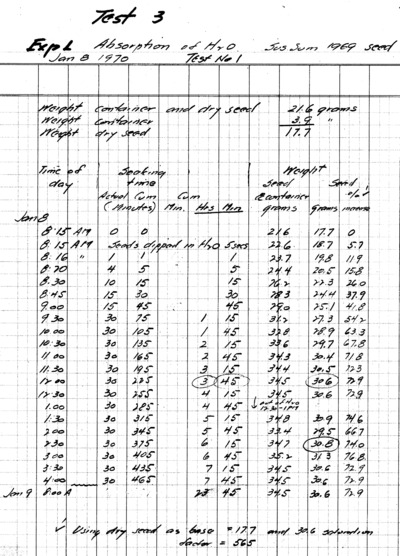 Test 3
Exp 1. Absorption of H2O Sus Sum 1969 seed
Jan 8 1970 Test No 1
Weight container and dry seed 21.6 grams
Weight container 3.9 "
Weight dry seed 17.7
Time of Soaking Weight
day time Seed Seed
Actual Cum Cum & container % ↑
(Minutes) Min. Hrs Min grams grams increase
Jan 8
8:15 AM 0 0 21.6 17.7 0
8.15 AM Seeds dipped in H2O 5 secs 22.6 18.7 5.7
8.16 " 1 1 1 23.7 19.8 11.9
8:20 4 5 5 24.4 20.5 15.8
8.30 10 15 15 26.2 22.3 26.0
8:45 15 30 30 28.3 24.4 37.9
9.00 15 45 45 29.0 25.1 41.8
9.30 30 75 1 15 31.2 27.3 54.2
10.00 30 105 1 45 32.8 28.9 63.3
10:30 30 135 2 15 33.6 29.7 67.8
11.00 30 165 2 45 34.3 30.4 71.8
11.30 30 195 3 15 34.4 30.5 72.3
12.00 30 225 3 45 34.5 30.6 72.9
12.30 30 255 4 15 34.5 30.6 72.9
1.00 30 285 4 45 ↓ out of H2O 12:30-1 PM
1:30 30 315 5 15 34.8 30.9 74.6
2.00 30 345 5 45 33.4 29.5 66.7
2:30 30 375 6 15 34.7 30.8 74.0
3:00 30 405 6 45 35.2 31.3 76.8
3:30 30 435 7 15 34.5 30.6 72.9
4:00 30 465 7 45 34.5 30.6 72.9
Jan 9 8.00 A 23 45 34.5 30.6 72.9
✓ Using dry seed as base = 17.7 and 30.6 saturation
factor = 565